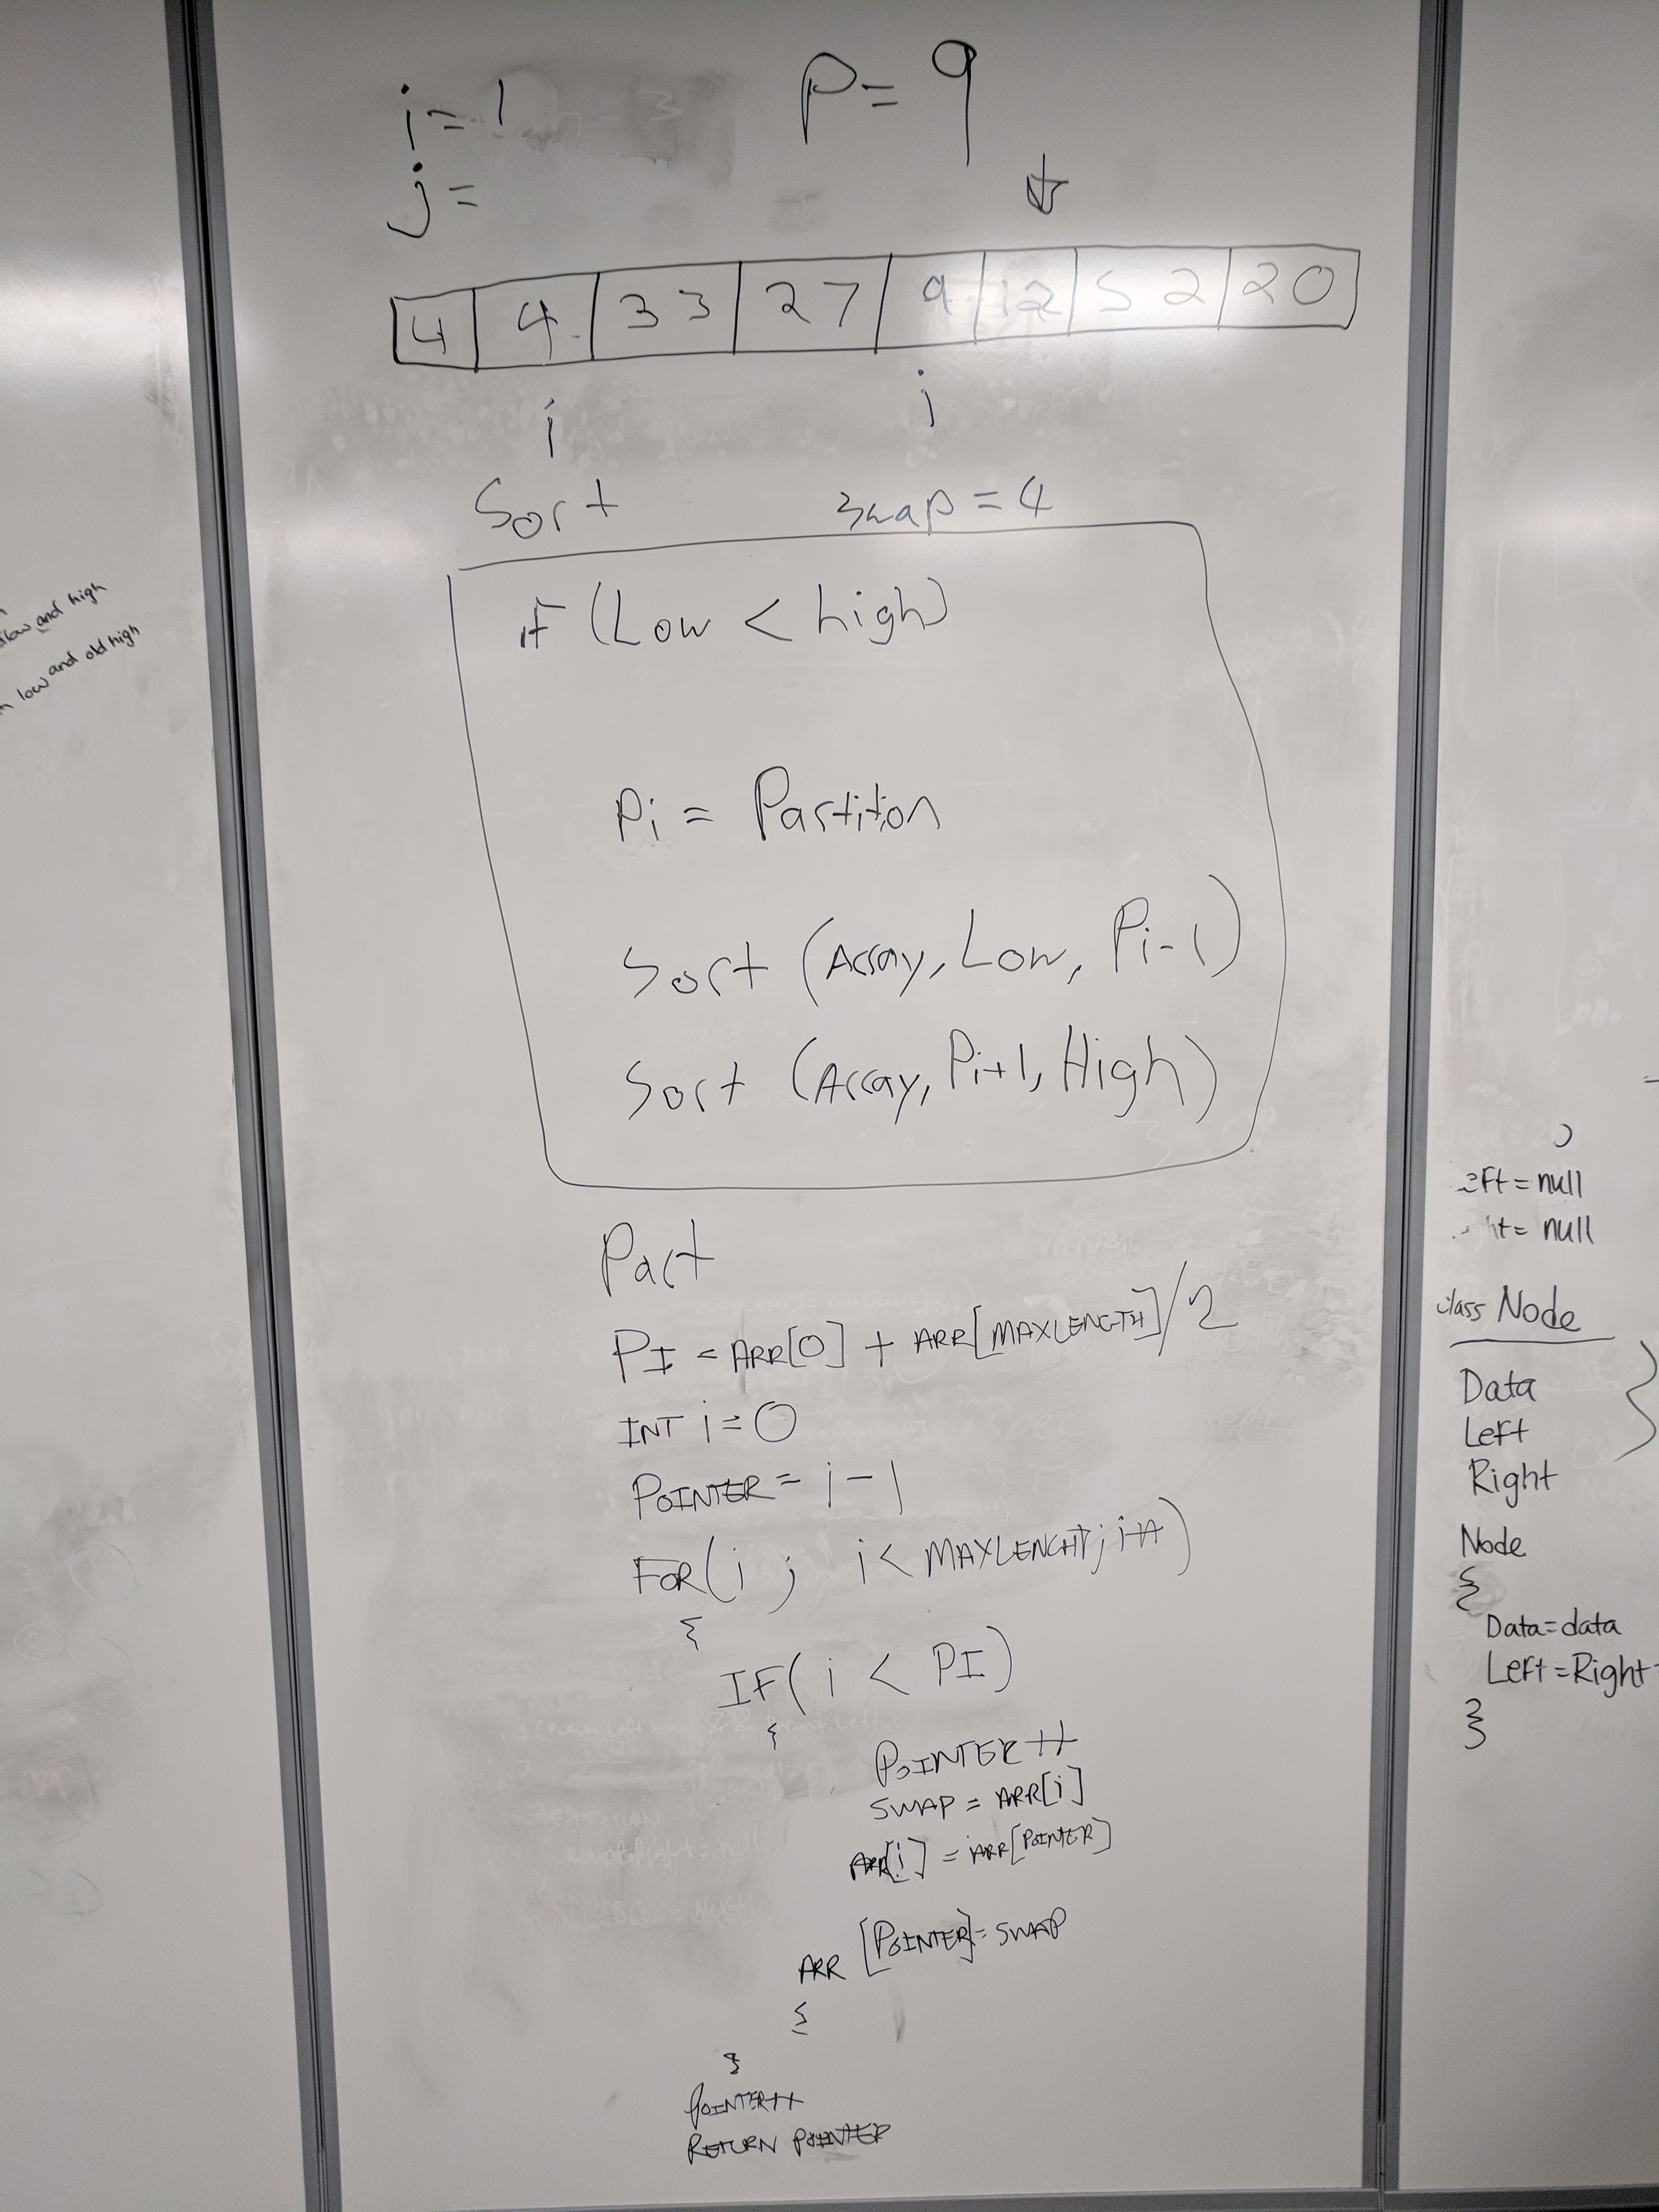 i = 1
P = 9
j =
4 4 33 27 9 12 52 20
i j
Sort
Swap = 4
if (Low < high)
Pi = Partition
Sort (Array, Low, Pi-1)
Sort (Array, Pi+1, High)
Part
PI = ARR[0] + ARR[MAXLENGTH]/2
INT i = 0
POINTER = i - 1
FOR(i ; i < MAXLENGHT; i++)
{
IF( i < PI)
{
POINTER++
SWAP = ARR[i]
ARR[i] = ARR[POINTER]
ARR [POINTER] = SWAP
}
}
POINTER++
RETURN POINTER
low and high
low and old high
= null
= null
class Node
Data
Left
Right
}
Node
{
Data = data
Left = Right
}